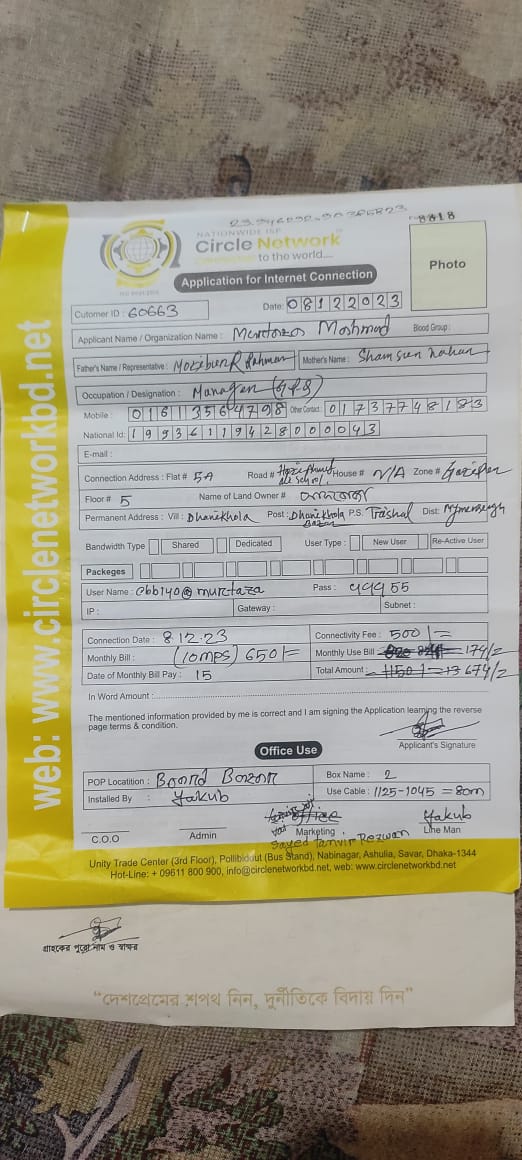 NATIONWIDE ISP
Circle Network
Connecting to the world....
Application for Internet Connection
8818
Photo
Cutomer ID : 60663 Date: 08122023
Applicant Name / Organization Name : Murtaza Mashmod Blood Group :
Father's Name / Representative : Mozibur Rahman Mother's Name : Shamsun Nahar
Occupation / Designation : Manager
Mobile : 01613564798 Other Contact : 01737748183
National Id: 19936119428000043
E-mail :
Connection Address : Flat # 5A Road # House # N/A Zone # Gazipur
Floor # 5 Name of Land Owner #
Permanent Address : Vill : Dhanikhola Post : Dhanikhola Bazar P.S. Trishal Dist: Mymensingh
Bandwidth Type Shared Dedicated User Type : New User Re-Active User
Packeges
User Name : cbb140@murtaza Pass : 999 55
IP : Gateway : Subnet :
Connection Date : 8.12.23 Connectivity Fee : 500/=
Monthly Bill : (10mps) 650/= Monthly Use Bill 174/=
Date of Monthly Bill Pay : 15 Total Amount : 674/=
In Word Amount :
The mentioned information provided by me is correct and I am signing the Application learning the reverse
page terms & condition.
Applicant's Signature
Office Use
POP Locatition : Board Bazar Box Name : 2
Installed By : Yakub Use Cable : 1125-1045 = 80m
office Yakub
C.O.O Admin Marketing Line Man
Sayed Tanvir Rezwan
Unity Trade Center (3rd Floor), Pollibiddut (Bus Stand), Nabinagar, Ashulia, Savar, Dhaka-1344
Hot-Line: + 09611 800 900, info@circlenetworkbd.net, web: www.circlenetworkbd.net
web: www.circlenetworkbd.net
গ্রাহকের পুরো নাম ও স্বাক্ষর
“দেশপ্রেমের শপথ নিন, দুর্নীতিকে বিদায় দিন”